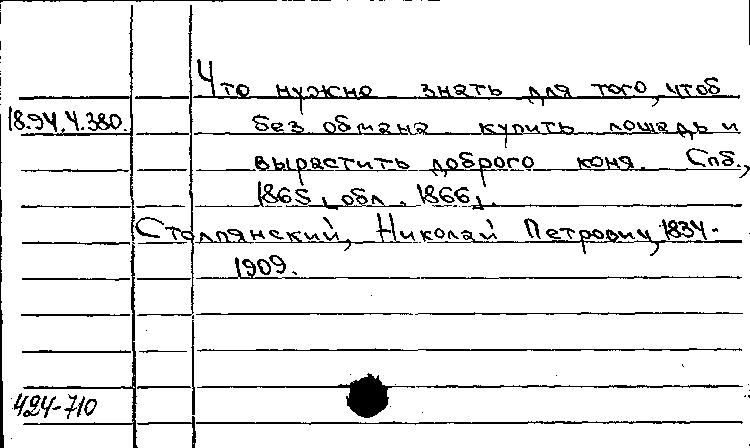 Что нужно знать для того, чтоб
18.94.4.380.
без обмана купить лошадь и
вырастить доброго коня. Спб.,
1865 [обл. 1866].
Столпянский, Николай Петрович, 1834-
1909.
424-710